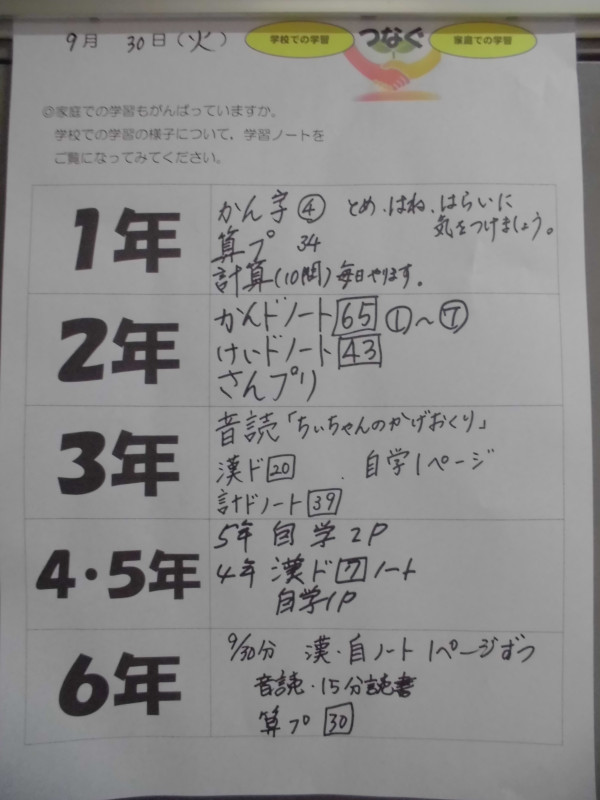 9月 30日(火)
学校での学習 つなぐ 家庭での学習
◎家庭での学習もがんばっていますか。
学校での学習の様子について、学習ノートを
ご覧になってみてください。
1年
かん字④ とめ、はね、はらいに
気をつけましょう。
算プ 34
計算(10問)毎日やります。
2年
かんドノート65 ①〜⑦
けいドノート43
さんプリ
3年
音読「ちいちゃんのかげおくり」
漢ド20 自学1ページ
計ドノート39
4・5年
5年 自学 2P
4年 漢ド7ノート
自学1P
6年
9/30分 漢・自ノート1ページずつ
音読・15分読書
算プ30